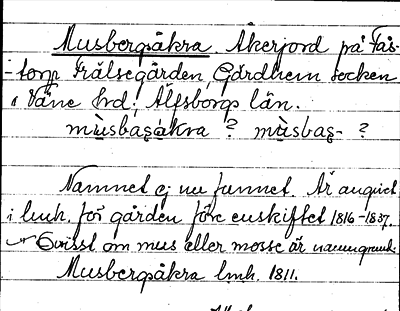 Musbergsåkra. Åkerjord på Fås-
torp Frälsegården, Gärdhem socken
i Väne hrd. Älfsborgs län.
mùsbas̱åkra ? mùsbas̱- ?
Namnet ej nu funnet. Är angivet
i lmh. för gården före enskiftet 1816-1837.
Ovisst om mus eller mosse är namngrund.
Musbergsåkra lmh. 1811.